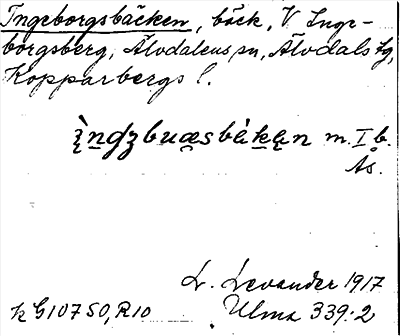 Ingeborgsbäcken, bäck, V Inge-
borgsberg, Älvdalens sn, Älvdals tg,
Kopparbergs l.
m. I b.
Ås.
L. Levander 1917
k G10750, R10 Ulma 339:2